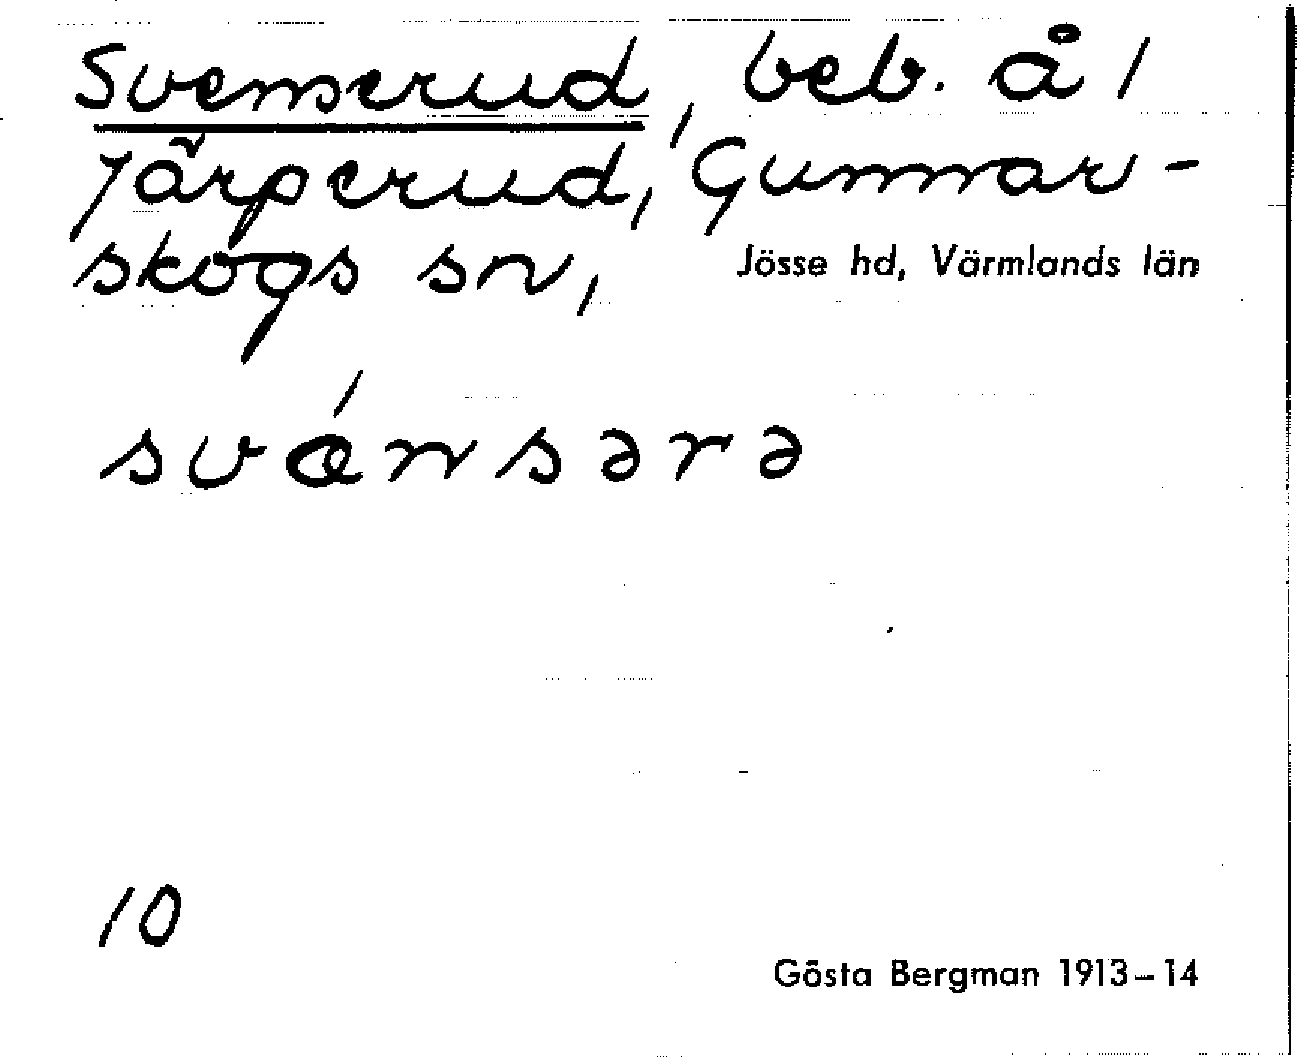 Svenserud, beb. å 1
Järperud, Gunnar-
skogs sn, Jösse hd, Värmlands län
svǽnsərə
10
Gösta Bergman 1913–14